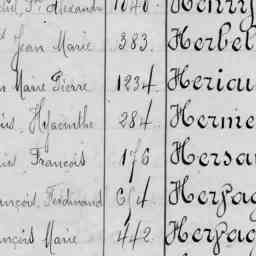 Alexandre 1040. Henry
Jean Marie 383. Herbel
Marie Pierre 1234. Heriau
Hyacinthe 284. Herme
François 176 Hersa
Ferdinand 694. Herpag
Marie 442. Herpag